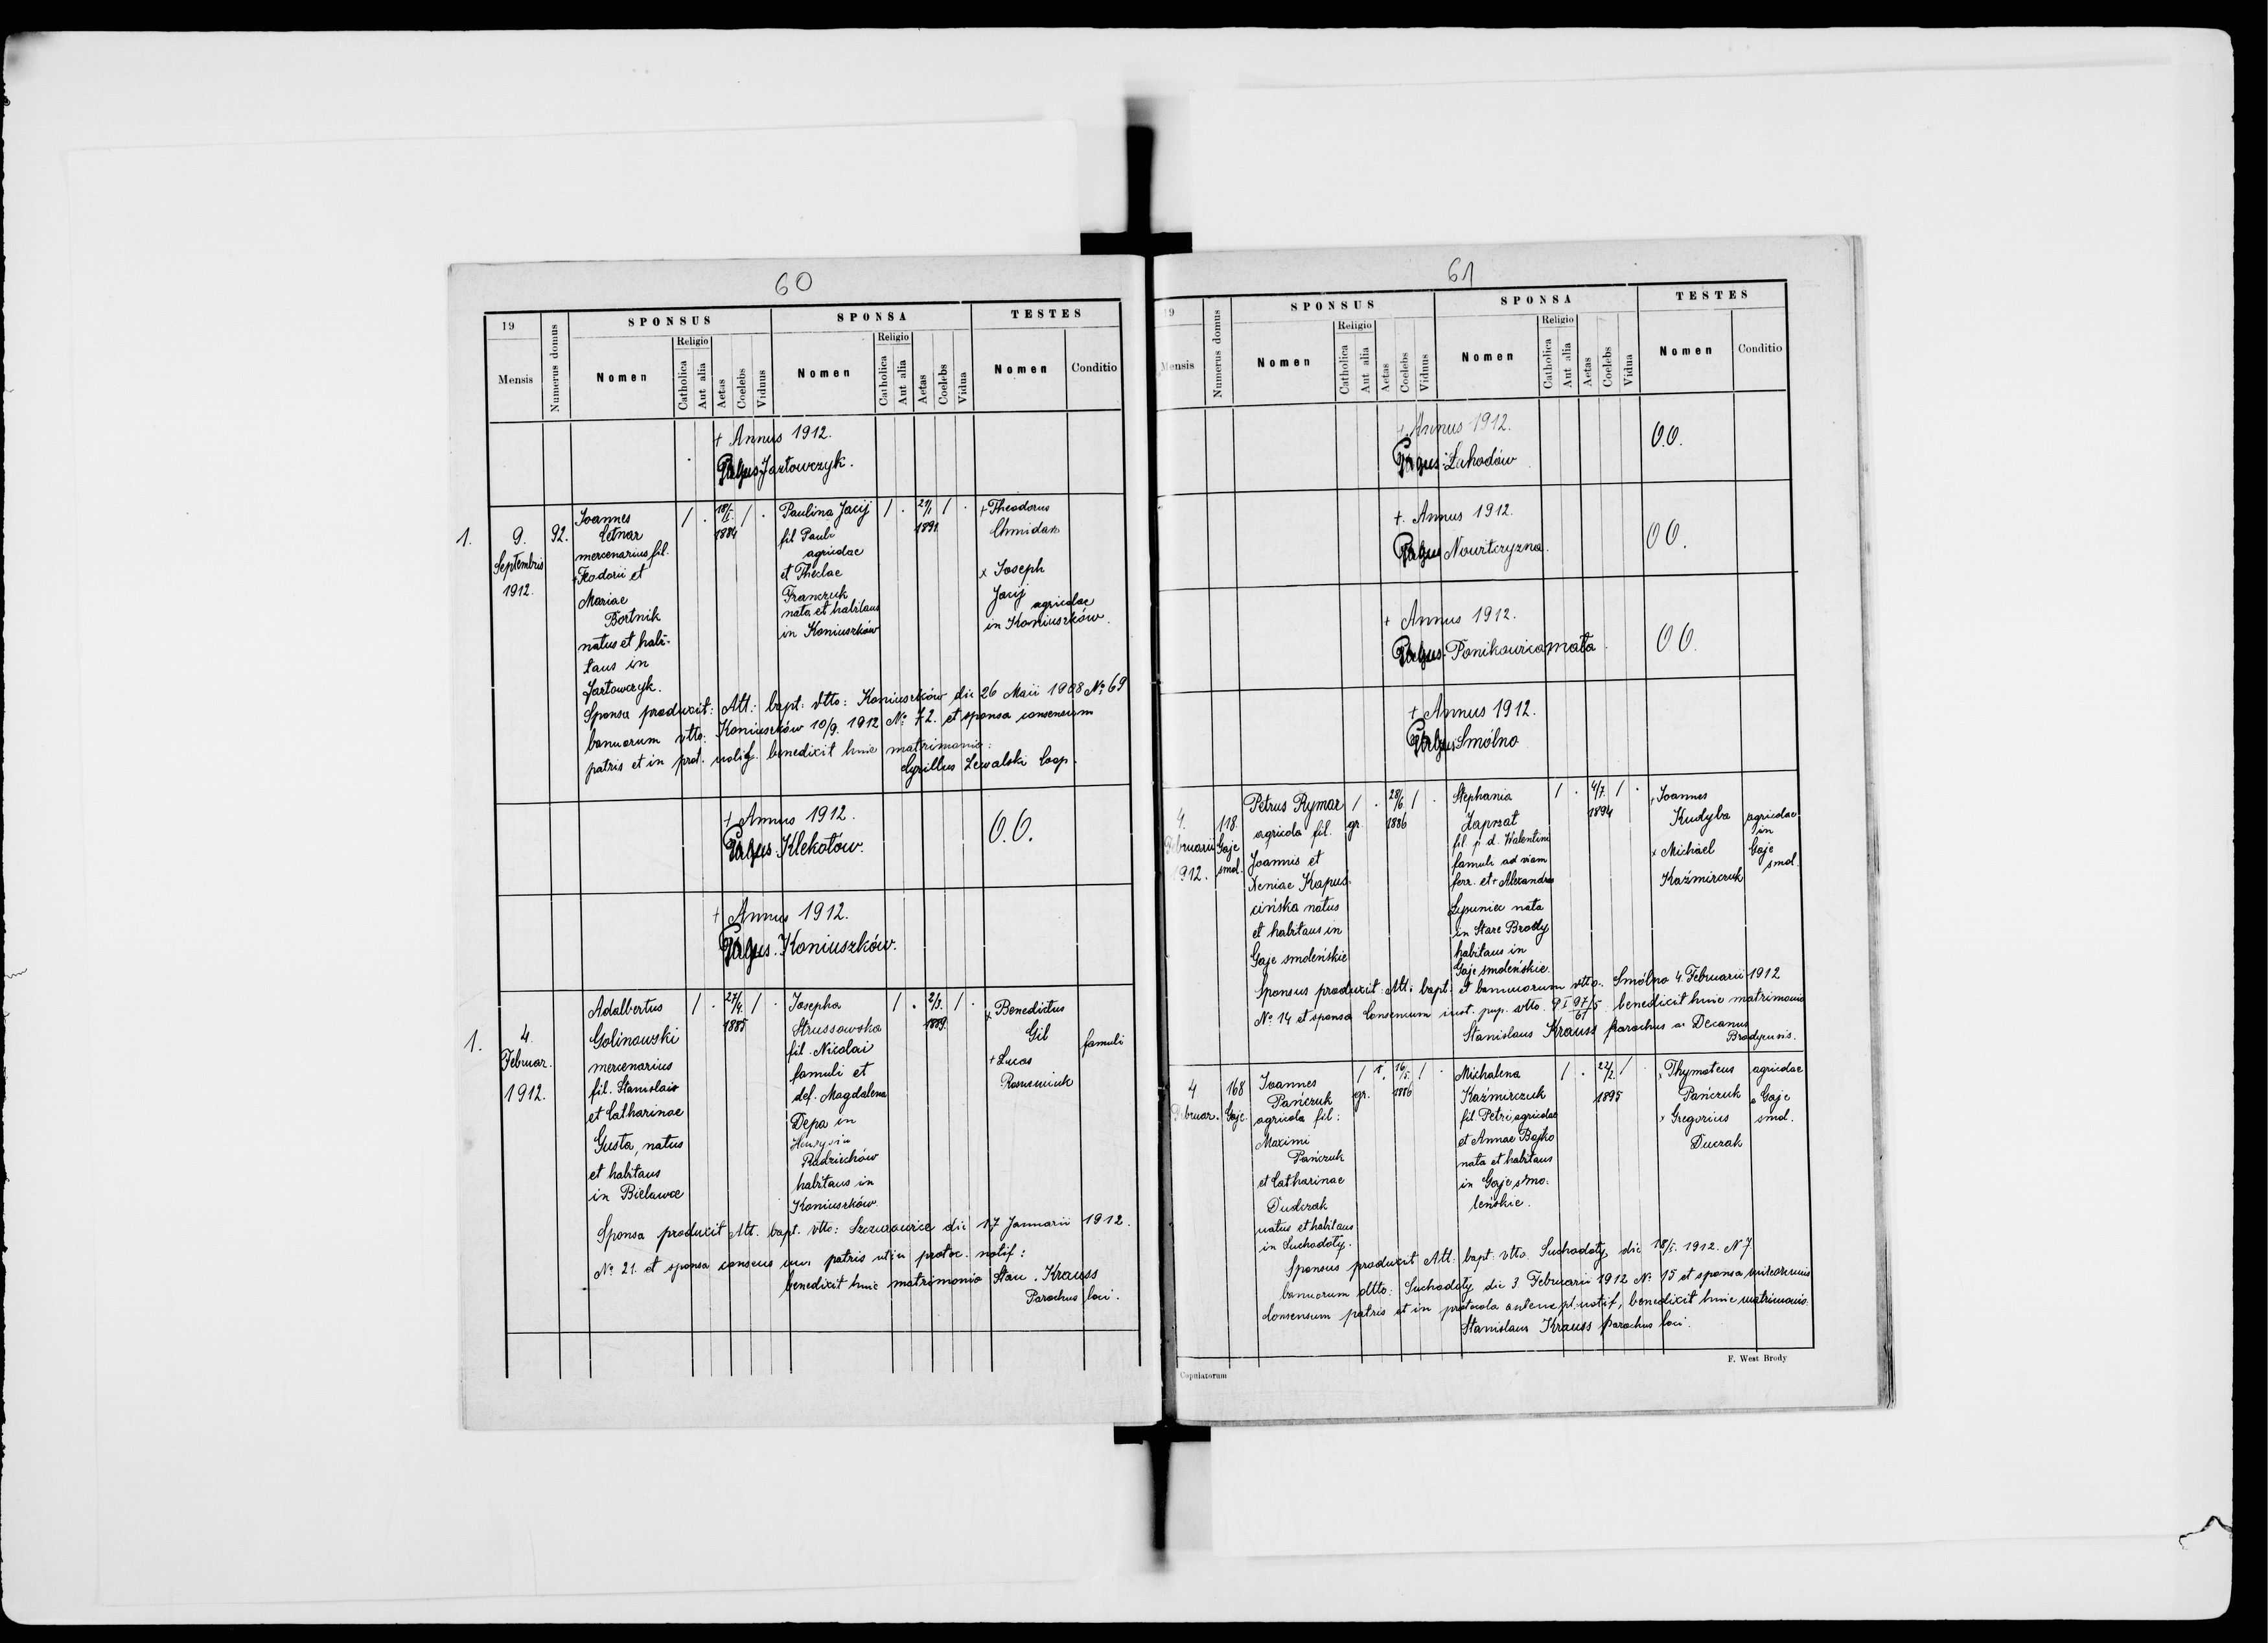 60
19
Mensis
Numerus domus
SPONSUS
Nomen
Religio
Catholica
Aut alia
Aetas
Coelebs
Viduus
SPONSA
Nomen
Religio
Catholica
Aut alia
Aetas
Coelebs
Vidua
TESTES
Nomen
Conditio
+ Annus 1912.
Pagus Jazłowczyk.
1.
9.
Septembris
1912.
92.
Joannes
Letnar
mercenarius fil.
+Feodorii et
Mariae
Bortnik
natus et habi-
tans in
Jazłowczyk.
/ . 18/I 1884 / .
Paulina Jacij
fil Pauli
agricolae
et Theclae
Franczuk
nata et habitans
in Koniuszków
/ . 21/1 1891 / .
+ Theodorus
Chmidan
x Joseph
Jacij
agricolae
in Koniuszków.
Sponsa produxit: Att: bapt: dtto: Koniuszków die 26 Maii 1908 No: 69
bannorum dtto: Koniuszków 10/9. 1912 No: 72. et sponsa consensum
patris et in prot. notif. benedixit huic matrimonio:
Cyrillus Lewalski Coop.
+ Annus 1912.
Pagus Klekotów.
0.0.
+ Annus 1912.
Pagus. Koniuszków.
1.
4.
Februar.
1912.
Adalbertus
Golinowski
mercenarius
fil. Stanislai
et Catharinae
Gusta, natus
et habitans
in Bielawce
/ . 27/4. 1885 / .
Josepha
Strussowska
fil. Nicolai
famuli et
def. Magdalena
Depa in
Radziechów
habitans in
Koniuszków
/ . 2/3. 1889. / .
x Benedictus
Gil
+ Lucas
famuli
Sponsa produxit Att. bapt. dtto: Szczurowice die 17 Januarii 1912.
No: 21. et sponsa consensum patris uti in protoc. notif:
benedixit huic matrimonio Stan. Krauss
Parochus loci.
61
19
Mensis
Numerus domus
SPONSUS
Nomen
Religio
Catholica
Aut alia
Aetas
Coelebs
Viduus
SPONSA
Nomen
Religio
Catholica
Aut alia
Aetas
Coelebs
Vidua
TESTES
Nomen
Conditio
+ Annus 1912.
Pagus: Łahodów
0.0.
+. Annus 1912.
Pagus Nowiczyzna.
00.
+ Annus 1912.
Pagus Ponikowica mała.
00.
+ Annus 1912.
Pagus Smólno
4.
Februarii
1912.
118.
Gaje
smol.
Petrus Rymar
agricola fil.
Joannis et
Xeniae Kapus-
cińska natus
et habitans in
Gaje smoleńskie
/ . gr. 28/6 1886 / .
Stephania
Zaprzat
fil p. d. Walentini
famuli ad viam
ferr. et + Alexandra
Lypuniec nata
in Stare Brody
habitans in
Gaje smoleńskie.
/ . 4/7. 1894 / .
+ Joannes
Kudyba
x Michael
Kaźmirczuk
agricolae
in
Gaje
smol.
Sponsus produxit: Att: bapt: et bannorum dtto. Smólno 4 Februarii 1912
No: 14 et sponsa Consensum inst. pup. dtto. P I 97/5 61 benedixit huic matrimonio
Stanislaus Krauss parochus ac Decanus
Brodyensis.
4
Februar.
168
Gaje
Joannes
Pańczuk
agricola fil:
Maximi
Pańczuk
et Catharinae
Dudczak
natus et habitans
in Suchodoły.
/ gr. 16/5. 1886 / .
Michalena
Kaźmirczuk
fil Petri agricolae
et Annae Bojko
nata et habitans
in Gaje smo-
leńskie.
/ . 22/2. 1895 / .
x Thymoteus
Pańczuk
x Gregorius
Duczak
agricolae
Gaje
smol.
Sponsus produxit Att: bapt: dtto. Suchodoły die 18/I. 1912. N 7.
bannorum dtto: Suchodoły die 3. Februarii 1912 No: 15 et sponsa
Consensum patris et in protocolo notif, benedixit huic matrimonio:
Stanislaus Krauss parochus loci.
Copulatorum
F. West Brody